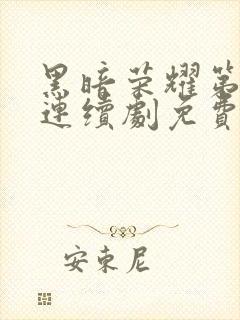 黑暗荣耀第
連續劇免費
安東尼